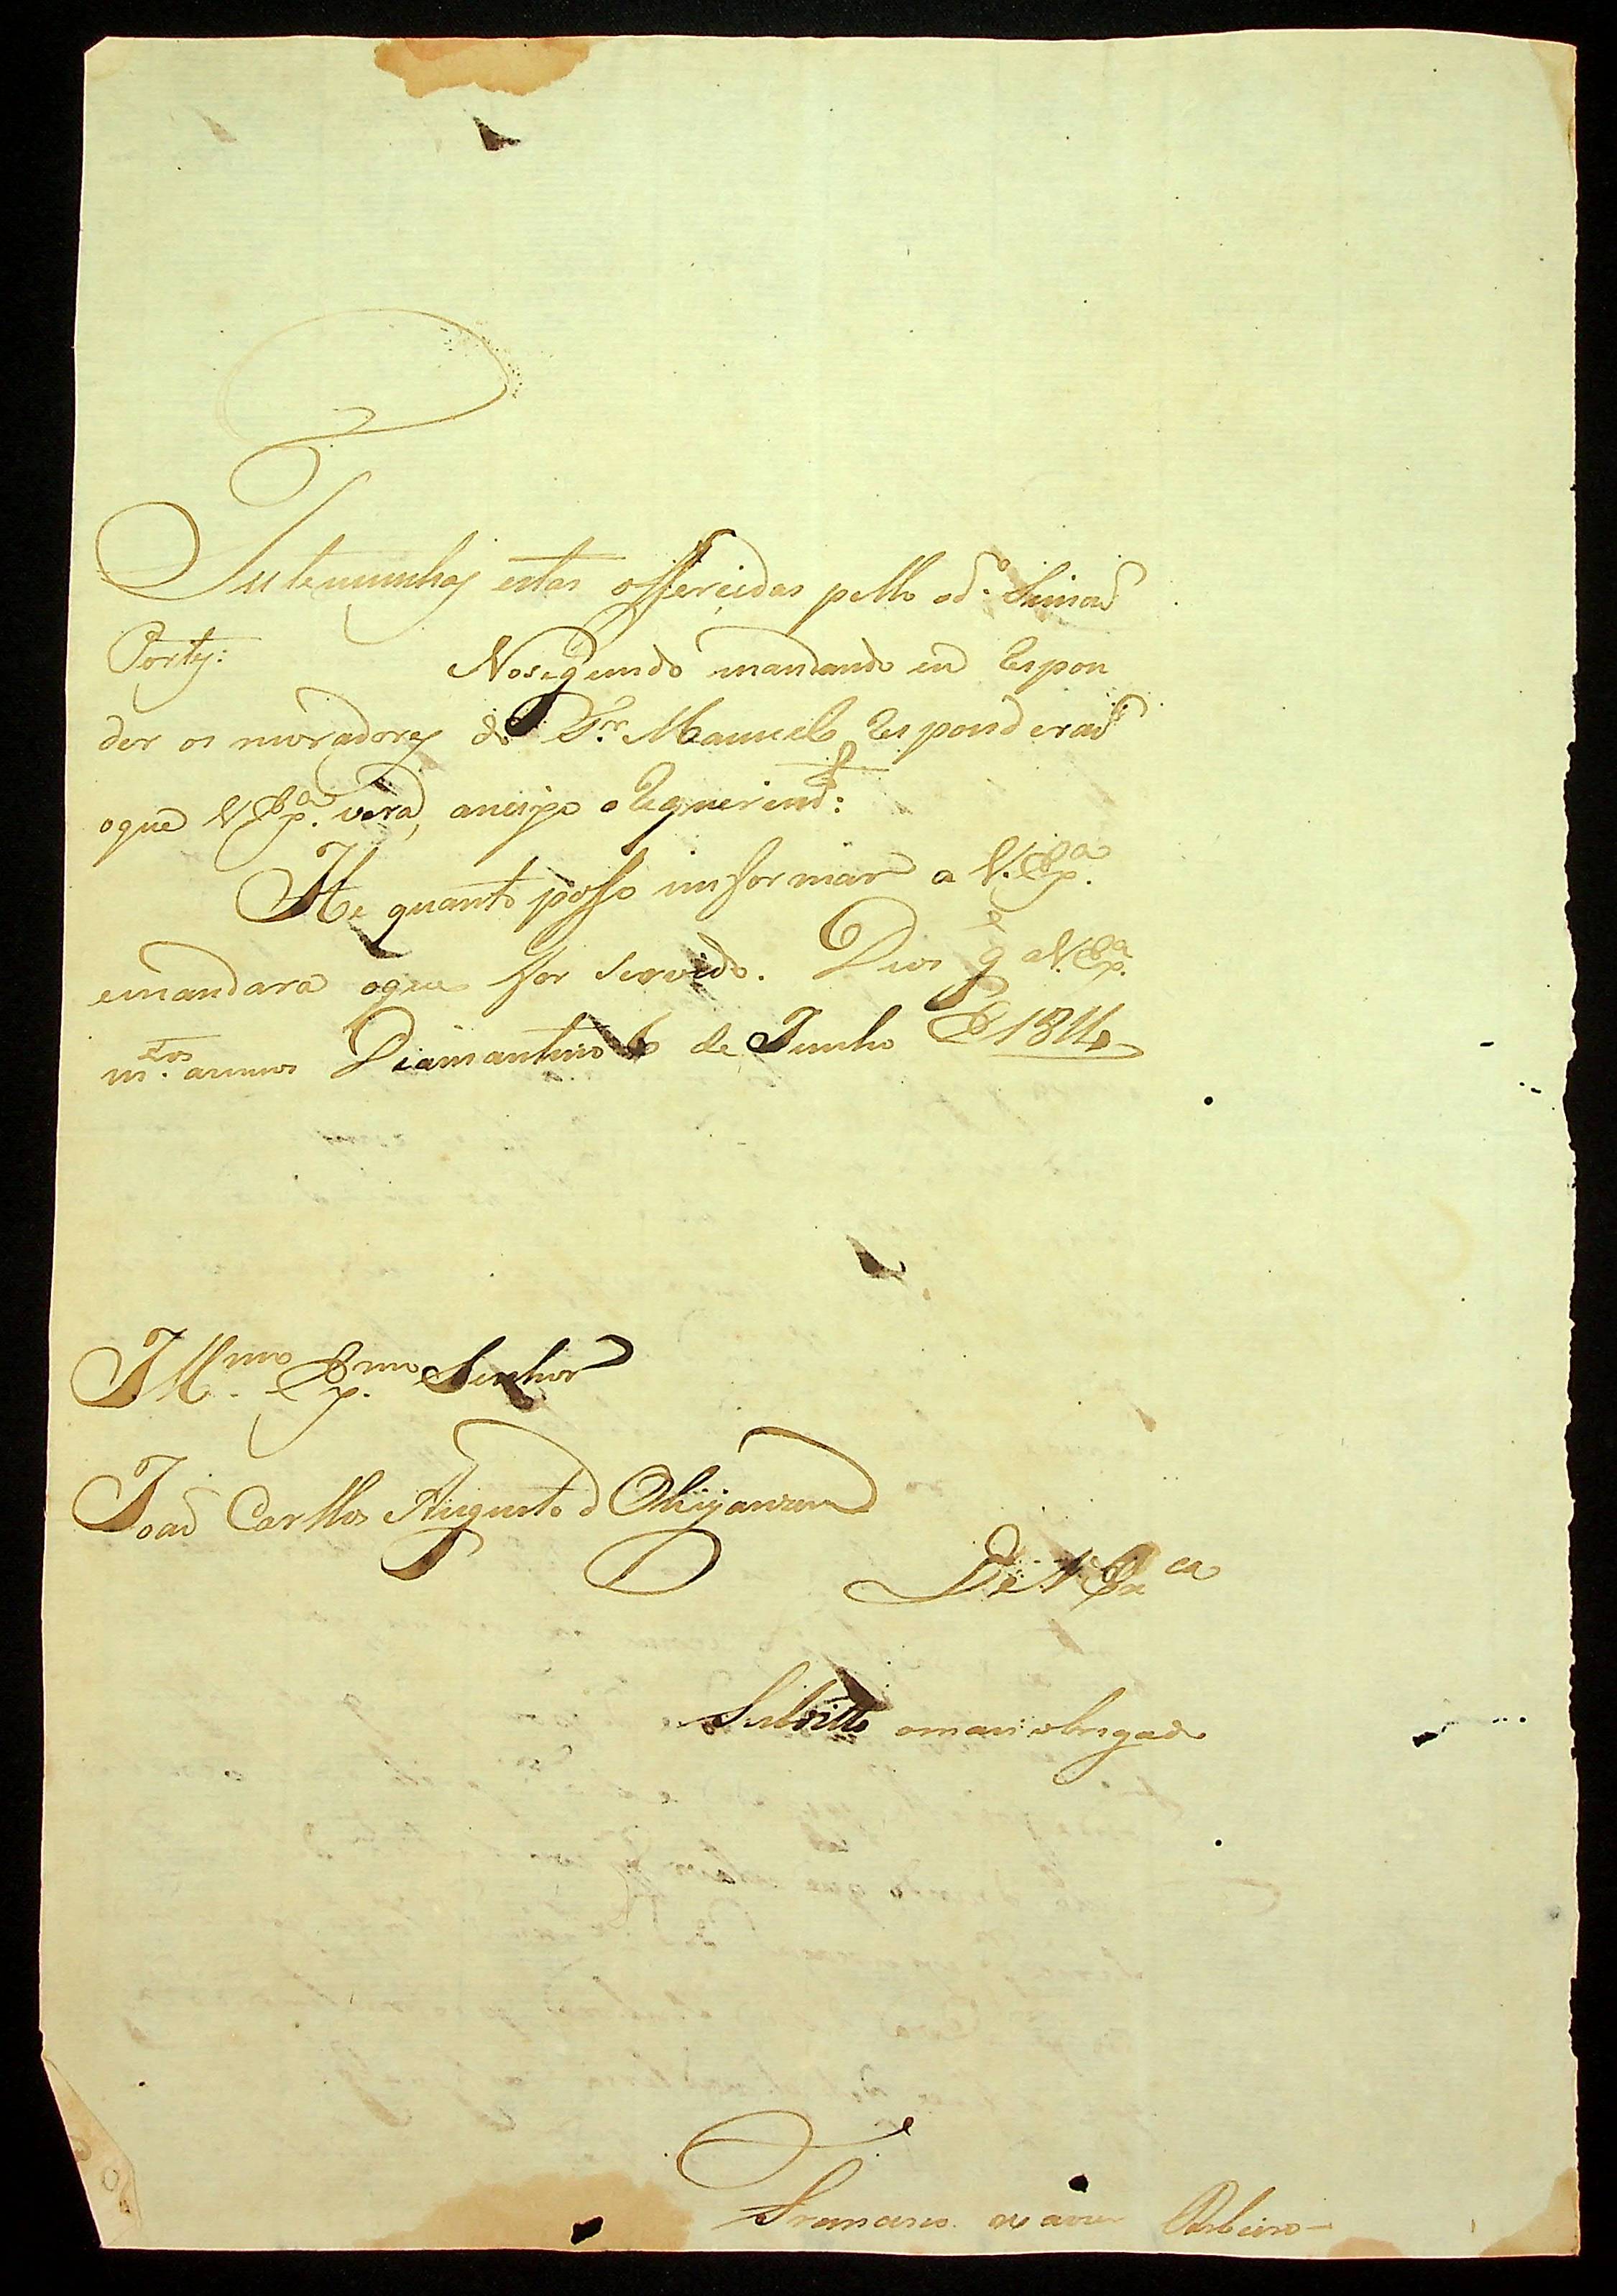 Testemunhas estas offerecidas pello od.º Simaõ
Nosegundo mandando eu Respon
der os moradores do Manuel Responderaõ
oque V. Ex.ª verá, Requerim.to:
He quanto posso imformar a V. Ex.ª
emandara oque for servido. Deos g.e a V. Ex.ª
m.tos annos Diamantino 6 de Junho de 1814
Ill.mo Ex.mo Senhor
Joaõ Carllos Augusto d Ohÿausen
De V. Ex.ca
Subditto omais obrigado
Francisco xavier Ribeiro